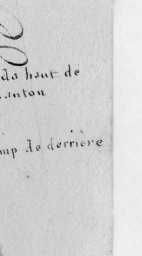 du haut de
canton
mp de derrière